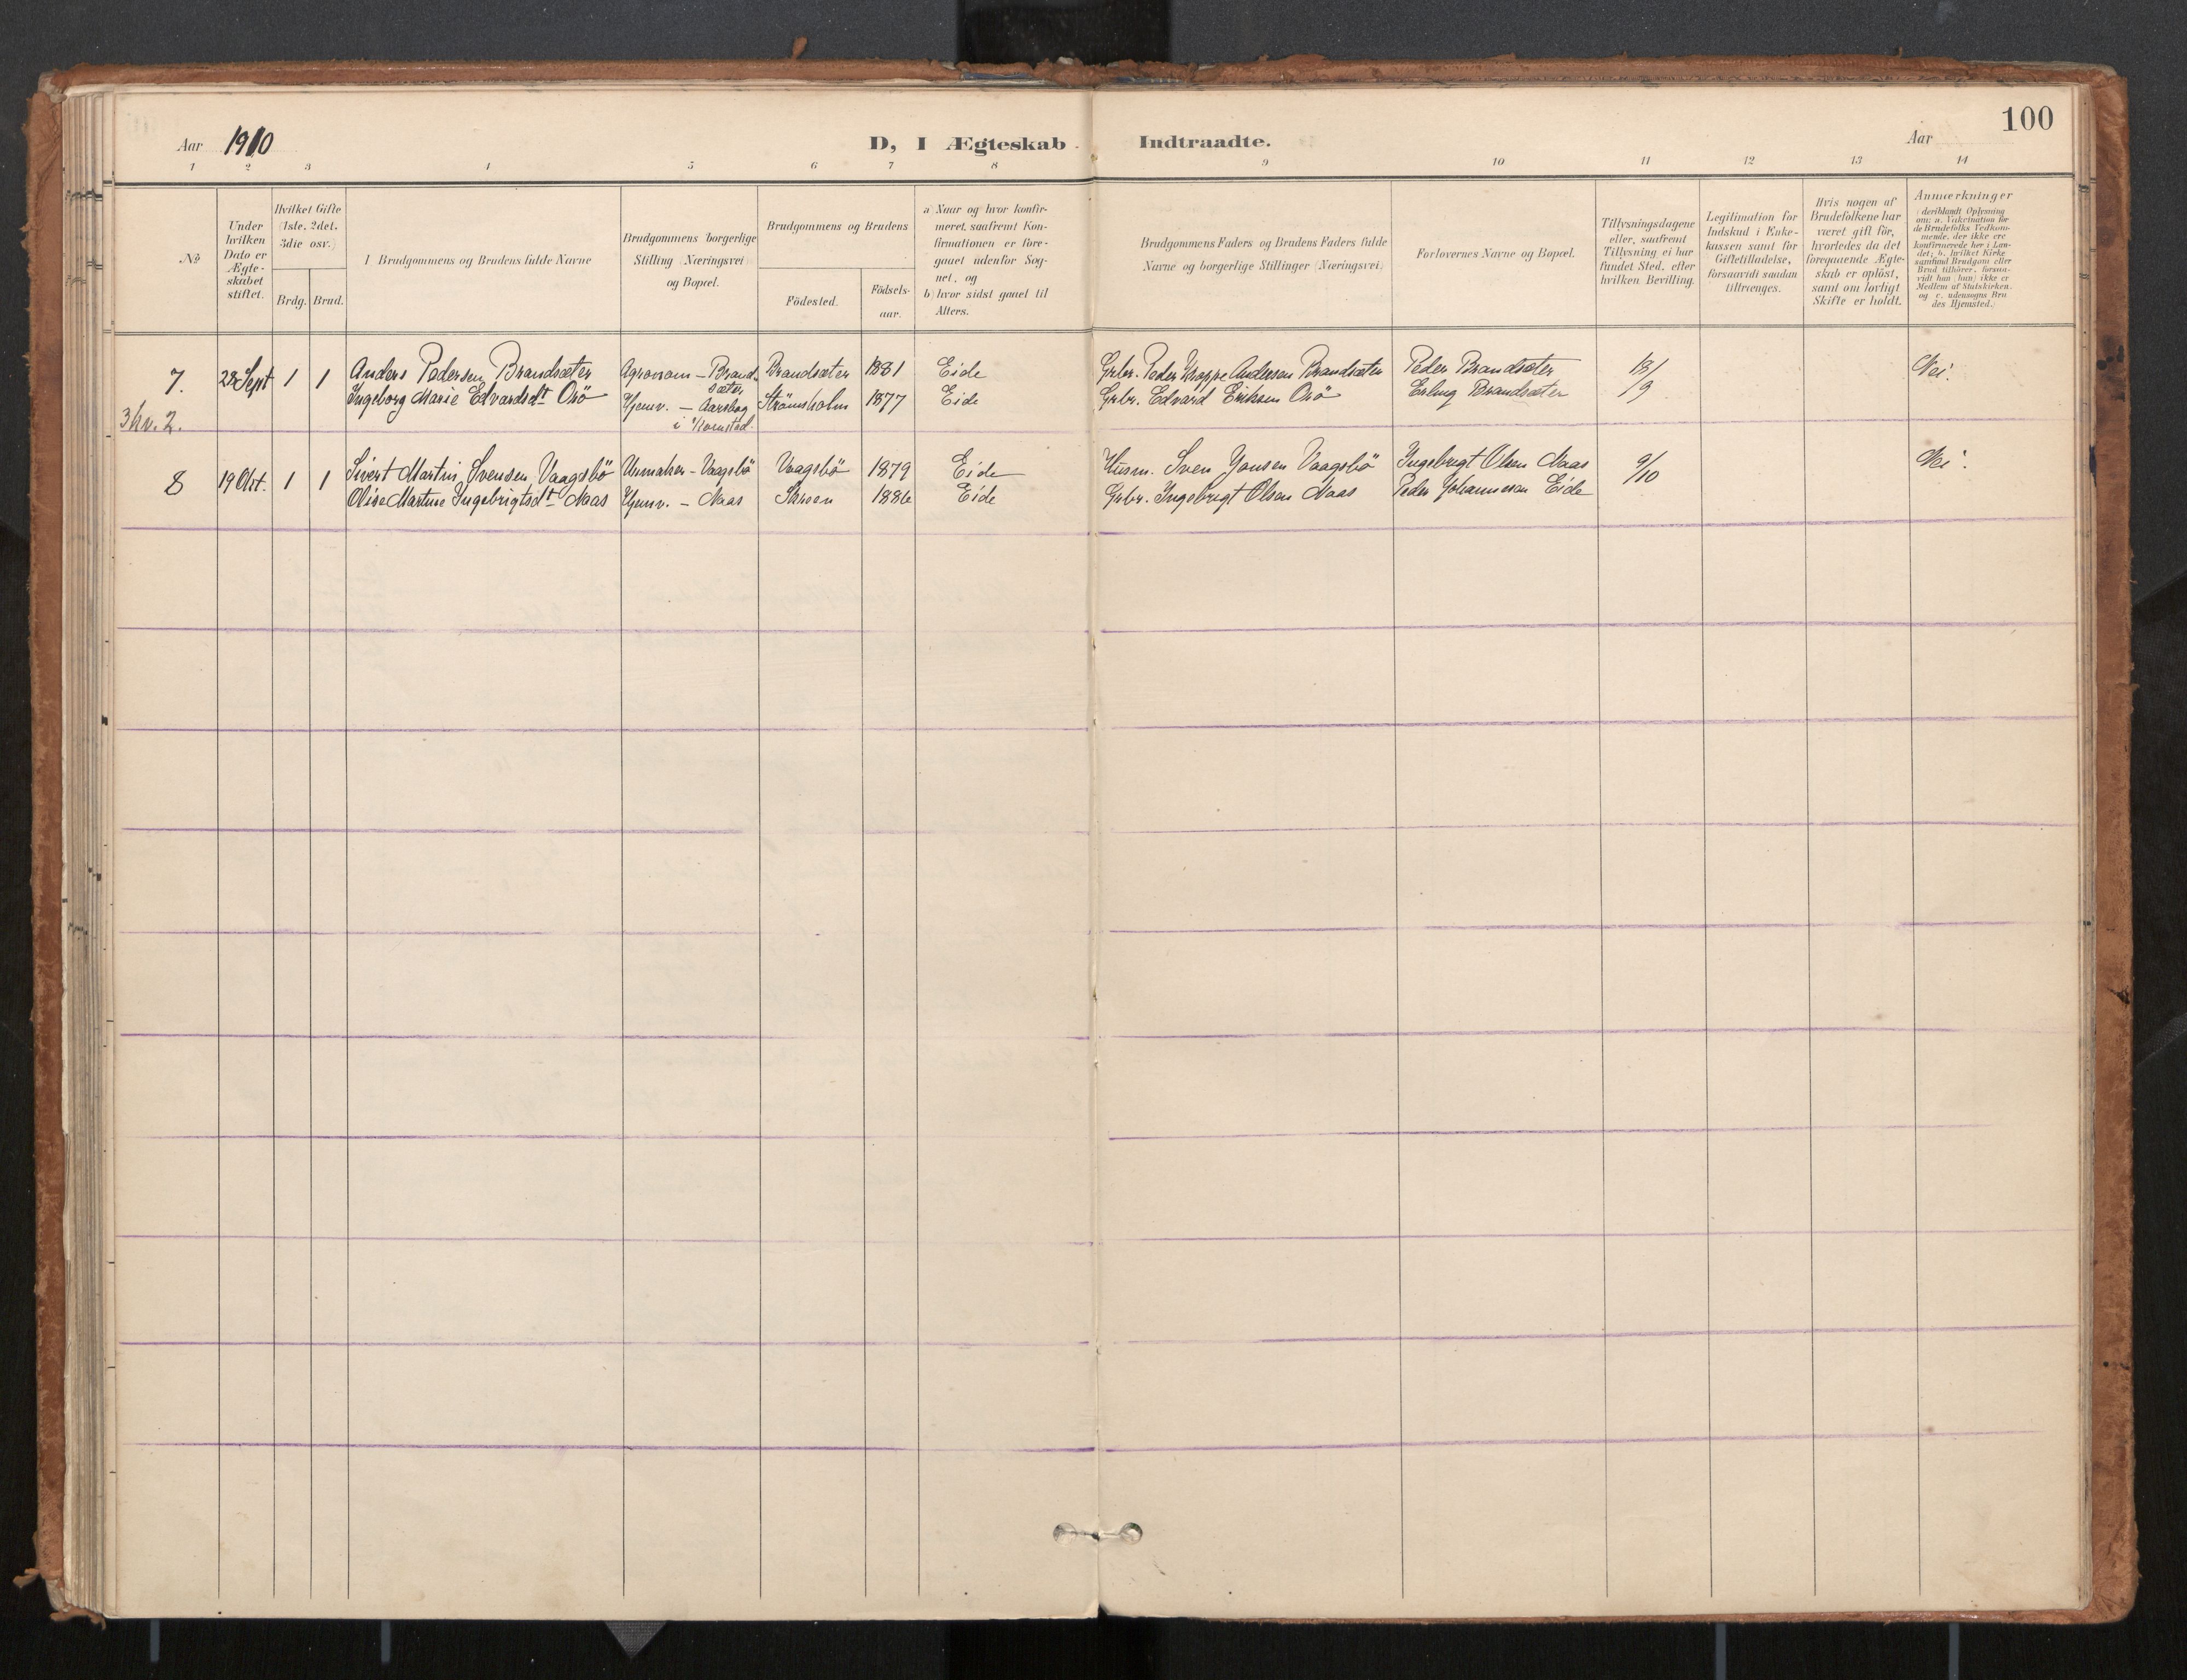 100
Aar 1910
D, I Ægteskab Indtraadte.
Aar
1 2 3 4 5 6 7 8 9 10 11 12 13 14
No
Under hvilken Dato er Ægte-skabet stiftet.
Hvilket Gifte (1ste, 2det, 3die osv.)
Brdg. Brud.
Brudgommens og Brudens fulde Navne
Brudgommens borgerlige Stilling (Næringsvei) og Bopæl.
Brudgommens og Brudens
Födested.
Födsels-aar.
a) Naar og hvor konfir-meret, saafremt Kon-firmationen er fore-gaaet udenfor Sog-net, og
b) hvor sidst gaaet til Alters.
Brudgommens Faders og Brudens Faders fulde Navne og borgerlige Stillinger (Næringsvei)
Forlovernes Navne og Bopæl.
Tillysningsdagene eller, saafremt Tillysning ei har fundet Sted, efter hvilken Bevilling.
Legitimation for Indskud i Enke-kassen samt for Giftetilladelse, forsaavidt saadan tiltrænges.
Hvis nogen af Brudefolkene har været gift för, hvorledes da det foregaaende Ægte-skab er oplöst, samt om lovligt Skifte er holdt.
Anmærkninger
(deriblandt Oplysning om: a. Vakcination for de Brudefolks Vedkom-mende, der ikke ere konfirmerede her i Lan-det; b. hvilket Kirke samfund Brudgom eller Brud tilhörer, forsaa-vidt han (hun) ikke er Medlem af Statskirken, og c. udensogns Bru des Hjemsted.)
7. 28 Sept 1 1 Anders Pedersen Brandsæter Agronom - Brand- Brandsæter 1881 Eide Grbr. Peder Andersen Brandsæter Peder Brandsæter 18/9 Nei.
sæter
Ingeborg Marie Edvardsdt Orö Hjemv. - Strömsholm 1877 Eide Grbr. Edvard Eriksen Orö Erling Brandsæter
i Kornstad
3 hv. 2.
8 19 Okt. 1 1 Sivert Martin Svensen Vaagsbö Urmaker - Vaagsbö Vaagsbö 1879 Eide Husm. Sven Jonsen Vaagsbö Ingebrigt Olsen Naas 9/10 Nei.
Martine Ingebrigtsdt Naas Hjemv. - Naas 1886 Eide Grbr. Ingebrigt Olsen Naas Peder Johannesen Eide